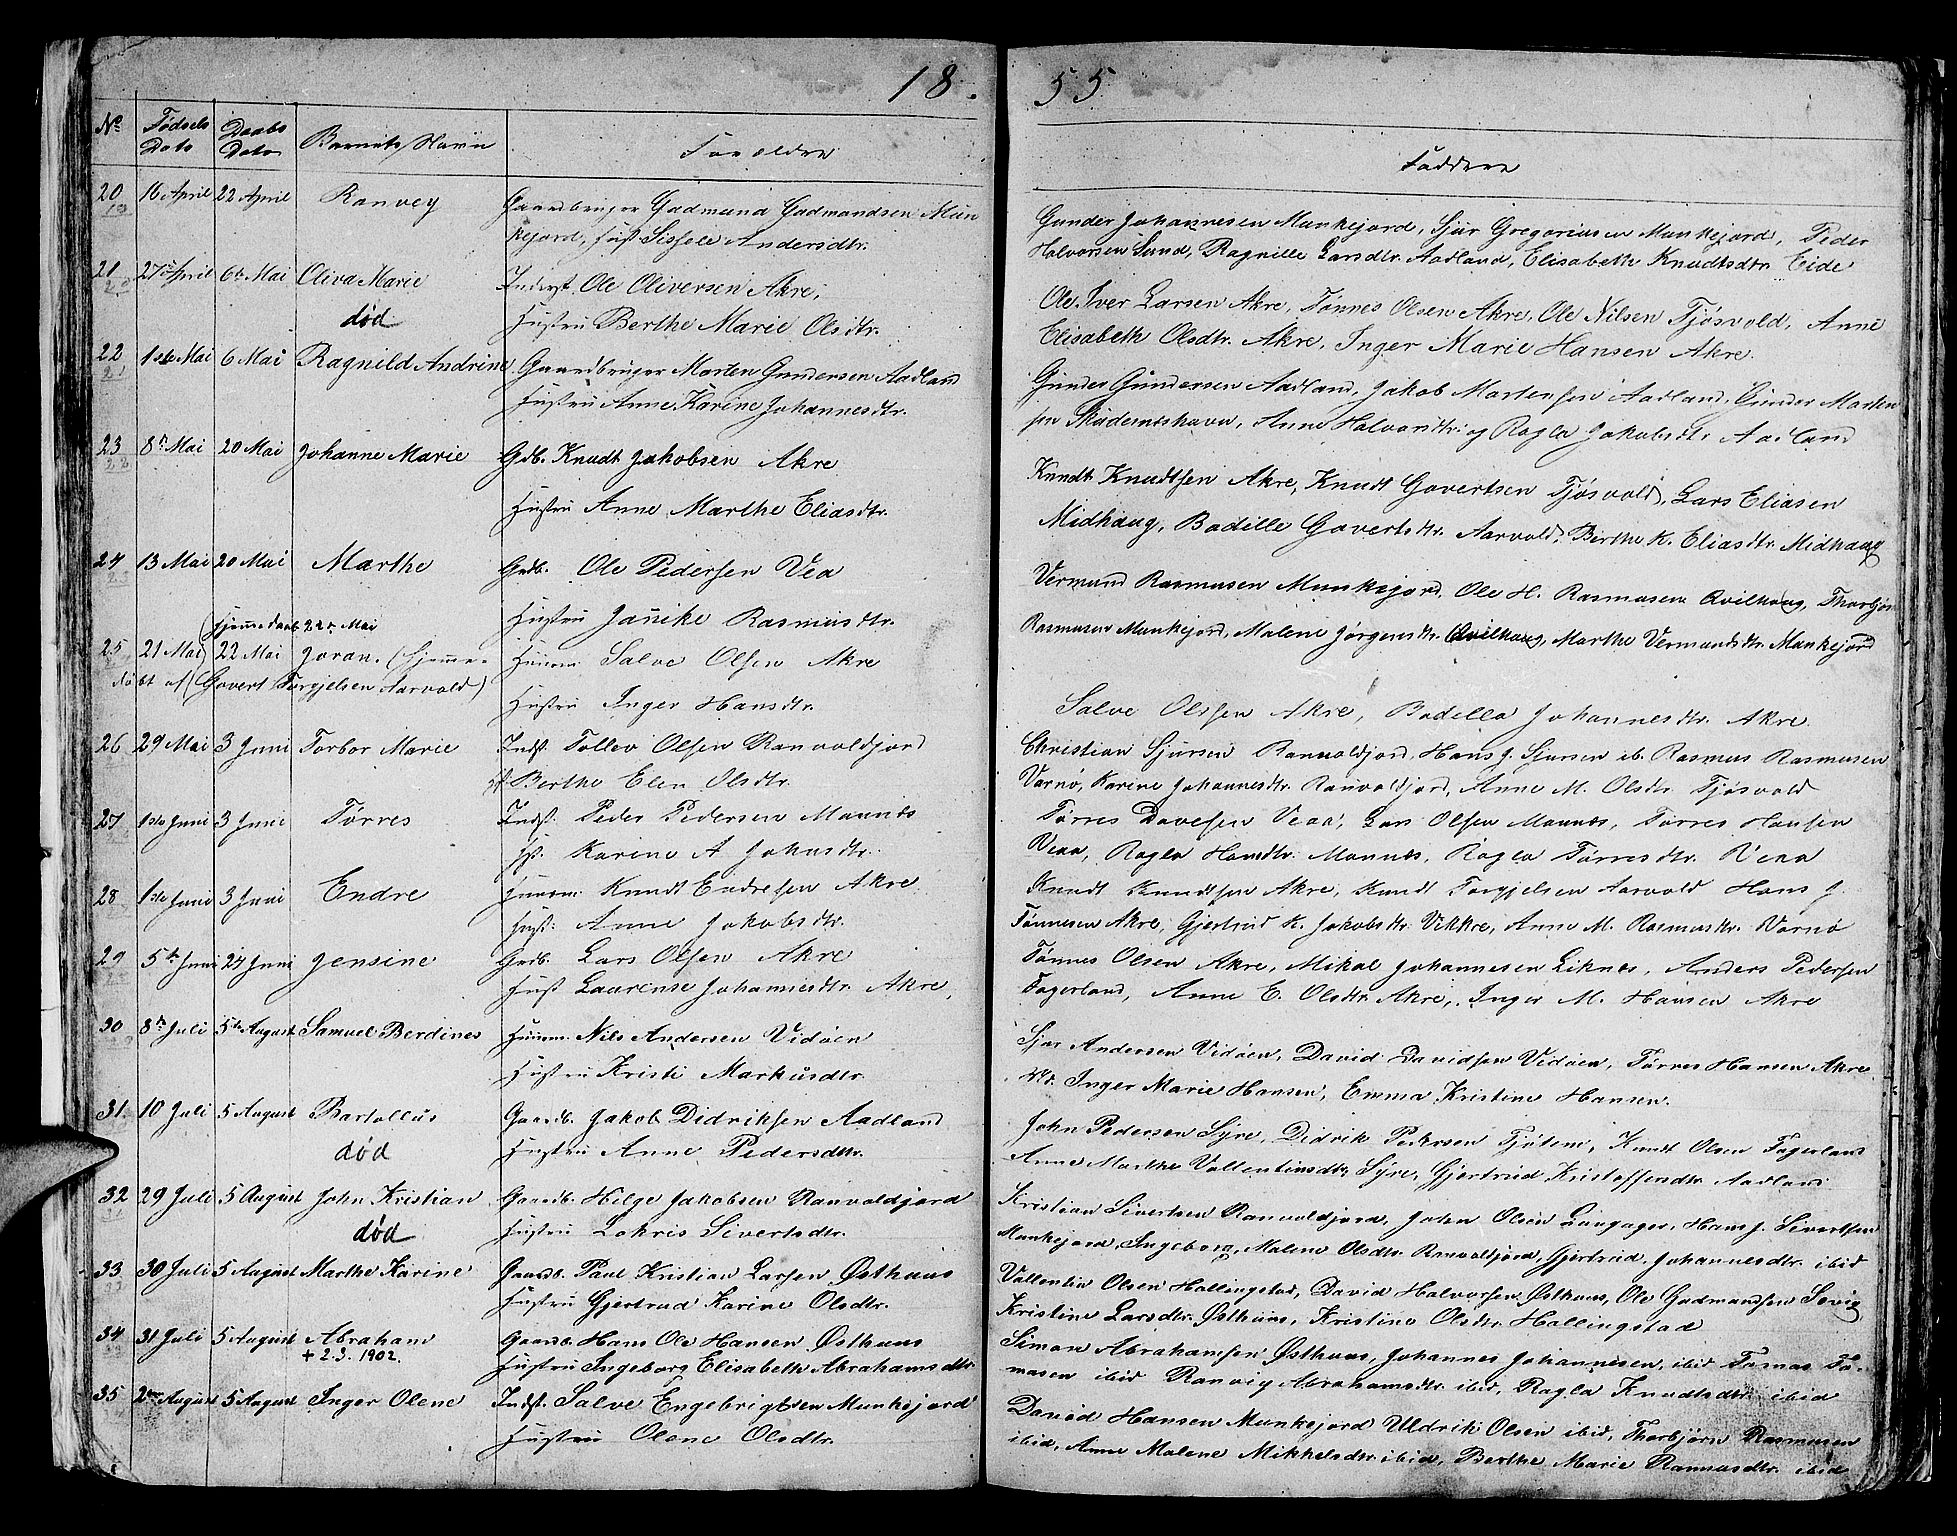 18. 55
No Fødsels Dato Daabs Dato Barnets Navn Forældre Faddere
20 16 April 22 April Ranvey Gaardbruger Gudmund Gudmundsen Mun
19 kejord, Hust Sissele Andersdtr.
Gunder Johannesen Munkejord, Sjur Gregoriusen Munkejord, Peder
Halvorsen Sund, Ragnille Larsdtr. Aadland, Elisabeth Knudtsdtr. Eide
21 27 April 6te Mai Oliva Marie Inderst. Ole Oliversen Akre,
20 død Hustru Berthe Marie Olsdtr.
Ole Iver Larsen Akre, Tønnes Olsen Akre, Ole Nilsen Tjøsvold, Anne
Elisabeth Olsdtr. Akre, Inger Marie Hansen Akre.
22 1ste Mai 6 Mai Ragnild Andrine Gaardbruger Morten Gundersen Aadland
21 Hustru Anne Karine Johannesdtr.
Gunder Gundersen Aadland, Jakob Mortensen Aadland, Gunder Morten
sen Skudeneshavn, Anne Halvorsdtr. og Ragla Jakobsdtr. Aadland
23 8de Mai 20 Mai Johanne Marie Gdb. Knudt Jakobsen Akre
Hustru Anne Marthe Eliasdtr.
Knudt Knudtsen Akre, Knudt Govertsen Tjøsvold, Lars Eliasen
Midhaug, Bodille Govertsdtr. Aarvold, Berthe K. Eliasdtr. Midhaug
24 13 Mai 20 Mai Marthe Grdb. Ole Pedersen Vea
23 Hustru Janike Rasmusdtr.
Vermund Rasmusen Munkejord, Ole H. Rasmusen Qvilhaug, Thorbjørn
Rasmusen Munkejord, Malene Jørgensdtr. Qvilhaug, Marthe Vermundsdtr. Munkejord
hjemmedaab 22de Mai
25 21 Mai 22 Mai Joran. (hjemme- Huusm. Salve Olsen Akre
døbt af (Govert Torgjelsen Aarvold) Hustru Inger Hansdtr.
Salve Olsen Akre, Bodella Johannesdtr. Akre
26 29 Mai 3 Juni Torbor Marie Indst. Tollev Olsen Ranvoldjord
H. Berthe Elen Olsdtr.
Christian Sjursen Ranvoldjord, Hans J. Sjursen ib. Rasmus Rasmusen
Varnø, Karine Johannesdtr. Ranvoldjord, Anne M. Olsdtr. Tjøsvold
27 1ste Juni 3 Juni Tørres Indst. Peder Pedersen Mannes
Hst. Karine A Johnsdtr.
Tørres Davesen Veaa, Lars Olsen Mannes, Tørres Hansen
Veaa, Ragla Hansdtr. Mannes, Ragla Tørresdtr. Veaa
28 1ste Juni 3 Juni Endre Huusm. Knudt Endresen Akre
Hust: Anne Jakobsdtr.
Knudt Knudtsen Akre, Knudt Torgjelsen Aarvold Hans J.
Tønnesen Akre, Gjertrud K. Jakobsdtr. Vikkre, Anne M. Rasmusdtr. Varnø
29 5te Juni 24 Juni Jensine Grdb. Lars Olsen Akre
Hust Laurense Johannesdtr. Akre,
Tønnes Olsen Akre, Mikal Johannesen Liknes, Anders Pedersen
Fagerland, Anne E. Olsdtr. Akre, Inger M. Hansen Akre
30 8de Juli 5te August Samuel Berdines Huusm. Nils Andersen Vidøen
Hustru Kristi Markusdtr.
Sjur Andersen Vidøen, David Davidsen Vidøen, Tørres Hansen Akre
Inger Marie Hansen, Emma Kristine Hansen.
31. 10 Juli 5 August Bartollus Gaardb. Jakob Didriksen Aadland
død Hustru Anne Pedersdtr.
John Pedersen Syre, Didrik Pedersen Tjøtem, Knudt Olsen Fagerland
Anne Marthe Vallentinsdtr. Syre, Gjertrud Kristoffersdtr. Aadland
32 29 Juli 5 August John Kristian Gaardb. Hilge Jakobsen Ranvoldjord
31 død Hustru Lokris Sivertsdtr.
Kristian Sivertsen Ranvoldjord, John Olsen Langager, Hans J. Sivertsen
Munkejord, Ingeborg Malene Olsdtr. Ranvoldjord, Gjertrud Johannesdtr. ibid
33 30 Juli 5 August Marthe Karine Gaardb. Paul Kristian Larsen Østhuus
Hustru Gjertrud Karine Olsdtr.
Vallentin Olsen Hallingstad, David Halvorsen Østhuus, Ole Gudmundsen Sevig
Kristine Larsdtr. Østhuus, Kristine Olsdtr. Hallingstad
34 31 Juli 5 August Abraham Gaardb. Hans Ole Hansen Østhuus
+ 2.3. 1902. Hustru Ingeborg Elisabeth Abrahamsdtr.
Simon Abrahamsen Østhuus, Johannes Johannesen ibid Tomas To-
masen ibid Ranvig Abrahamsdtr. ibid, Ragla Knudtsdtr. ibid
35 2den August 5 August Inger Olene Indst. Salve Engebrigtsen Munkejord
Hustru Olene Olsdtr.
David Hansen Munkejord Uldrik Olsen ibid, Thorbjørn Rasmusen
ibid, Anne Malene Mikkelsdtr. ibid, Berthe Marie Rasmusdtr. ibid